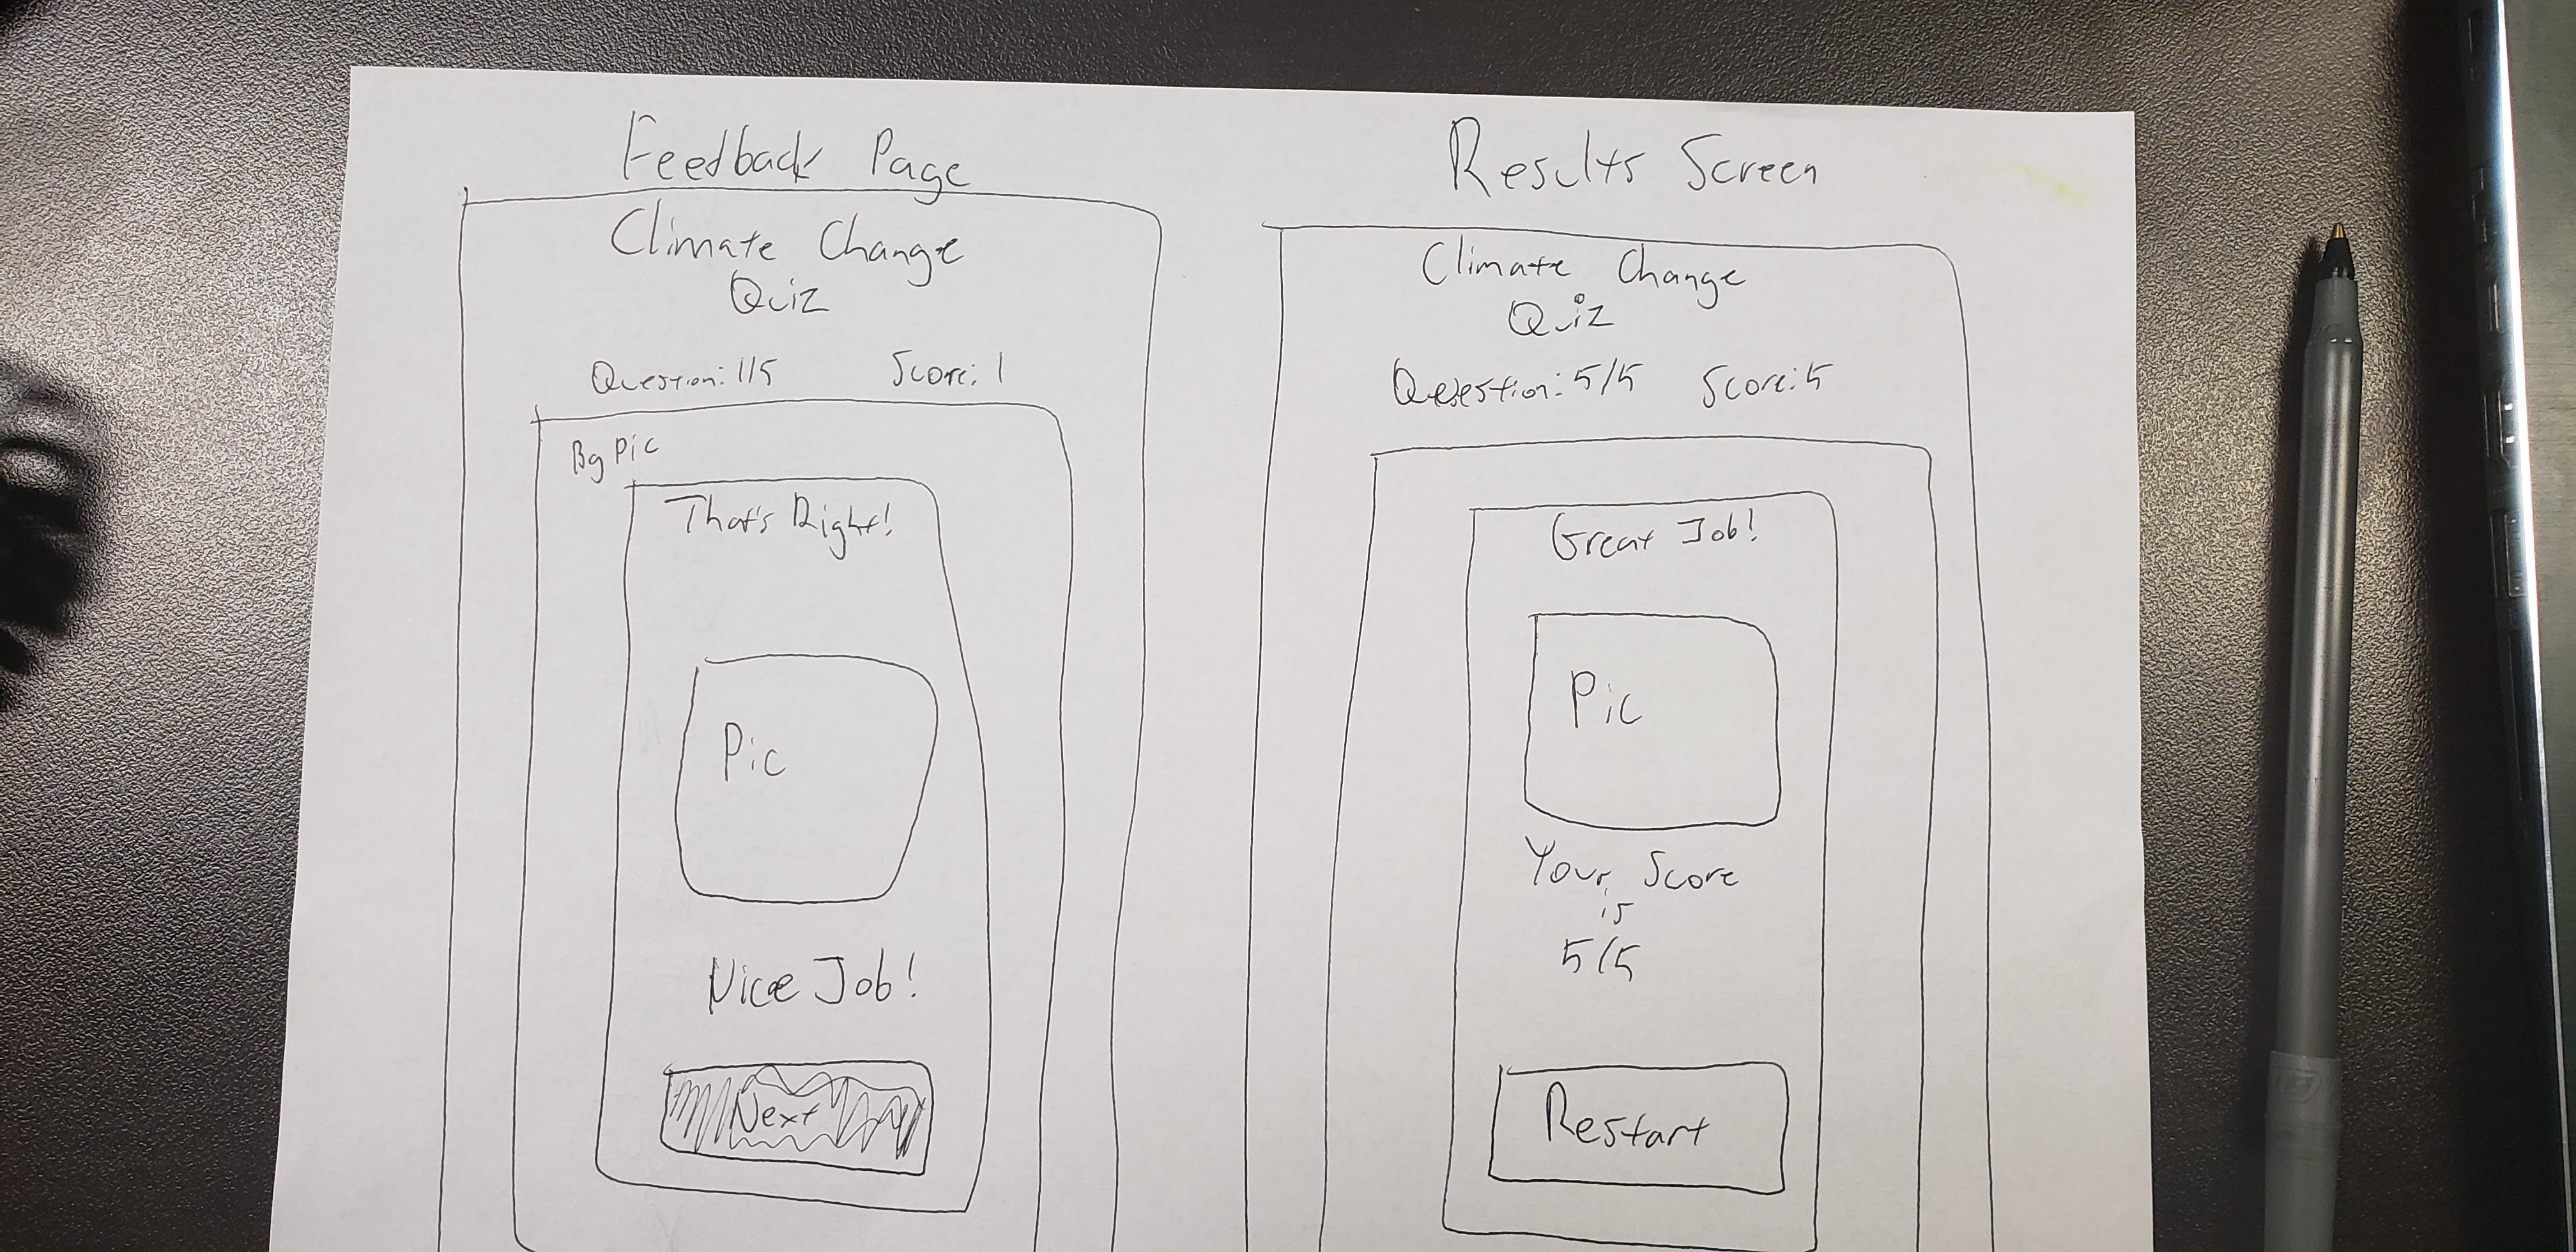 Feedback Page
Climate Change
Quiz
Question: 1/5 Score: 1
Bg pic
That's Right!
Pic
Nice Job!
Next
Results Screen
Climate Change
Quiz
Question: 5/5 Score: 5
Great Job!
Pic
Your Score
is
5/5
Restart